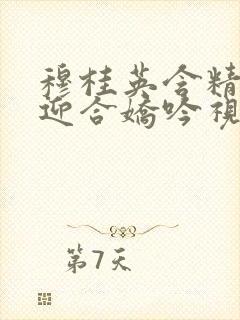 穆桂英含精
迎合嬌吟視
第7天